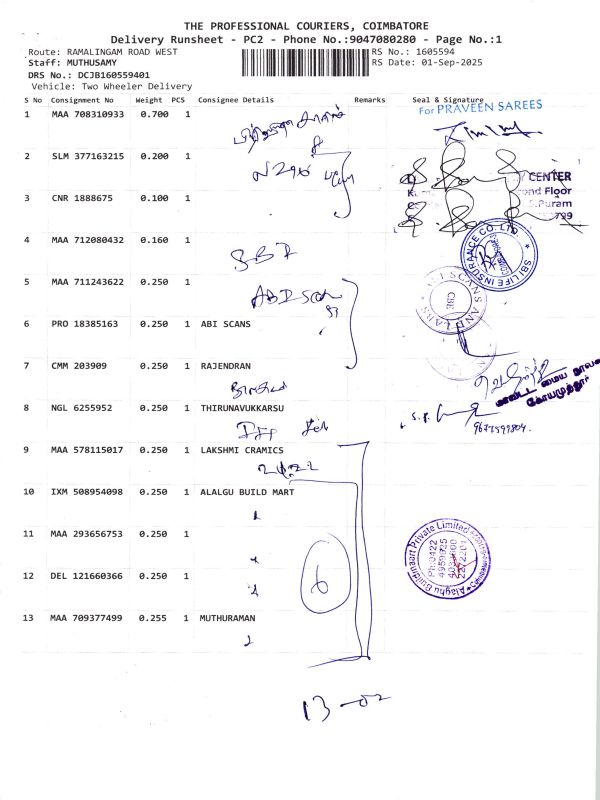 THE PROFESSIONAL COURIERS, COIMBATORE
Delivery Runsheet - PC2 - Phone No.:9047080280 - Page No.:1
Route: RAMALINGAM ROAD WEST
RS No.: 1605594
Staff: MUTHUSAMY
RS Date: 01-Sep-2025
DRS No.: DCJB160559401
Vehicle: Two Wheeler Delivery
S No Consignment No Weight PCS Consignee Details Remarks Seal & Signature
For PRAVEEN SAREES
1 MAA 708310933 0.700 1
2 SLM 377163215 0.200 1
CENTER
ond Floor
3 CNR 1888675 0.100 1
Puram
4 MAA 712080432 0.160 1
SBI
SBI LIFE INSURANCE CO. LTD
5 MAA 711243622 0.250 1
ABI Scan
SCANS AND LABS
CBE
6 PRO 18385163 0.250 1 ABI SCANS
7 CMM 203909 0.250 1 RAJENDRAN
8 NGL 6255952 0.250 1 THIRUNAVUKKARSU
9 MAA 578115017 0.250 1 LAKSHMI CRAMICS
10 IXM 508954098 0.250 1 ALALGU BUILD MART
11 MAA 293656753 0.250 1
Alaghu Buildmaart Private Limited
Ph:0422
12 DEL 121660366 0.250 1
6
13 MAA 709377499 0.255 1 MUTHURAMAN
13 - 02